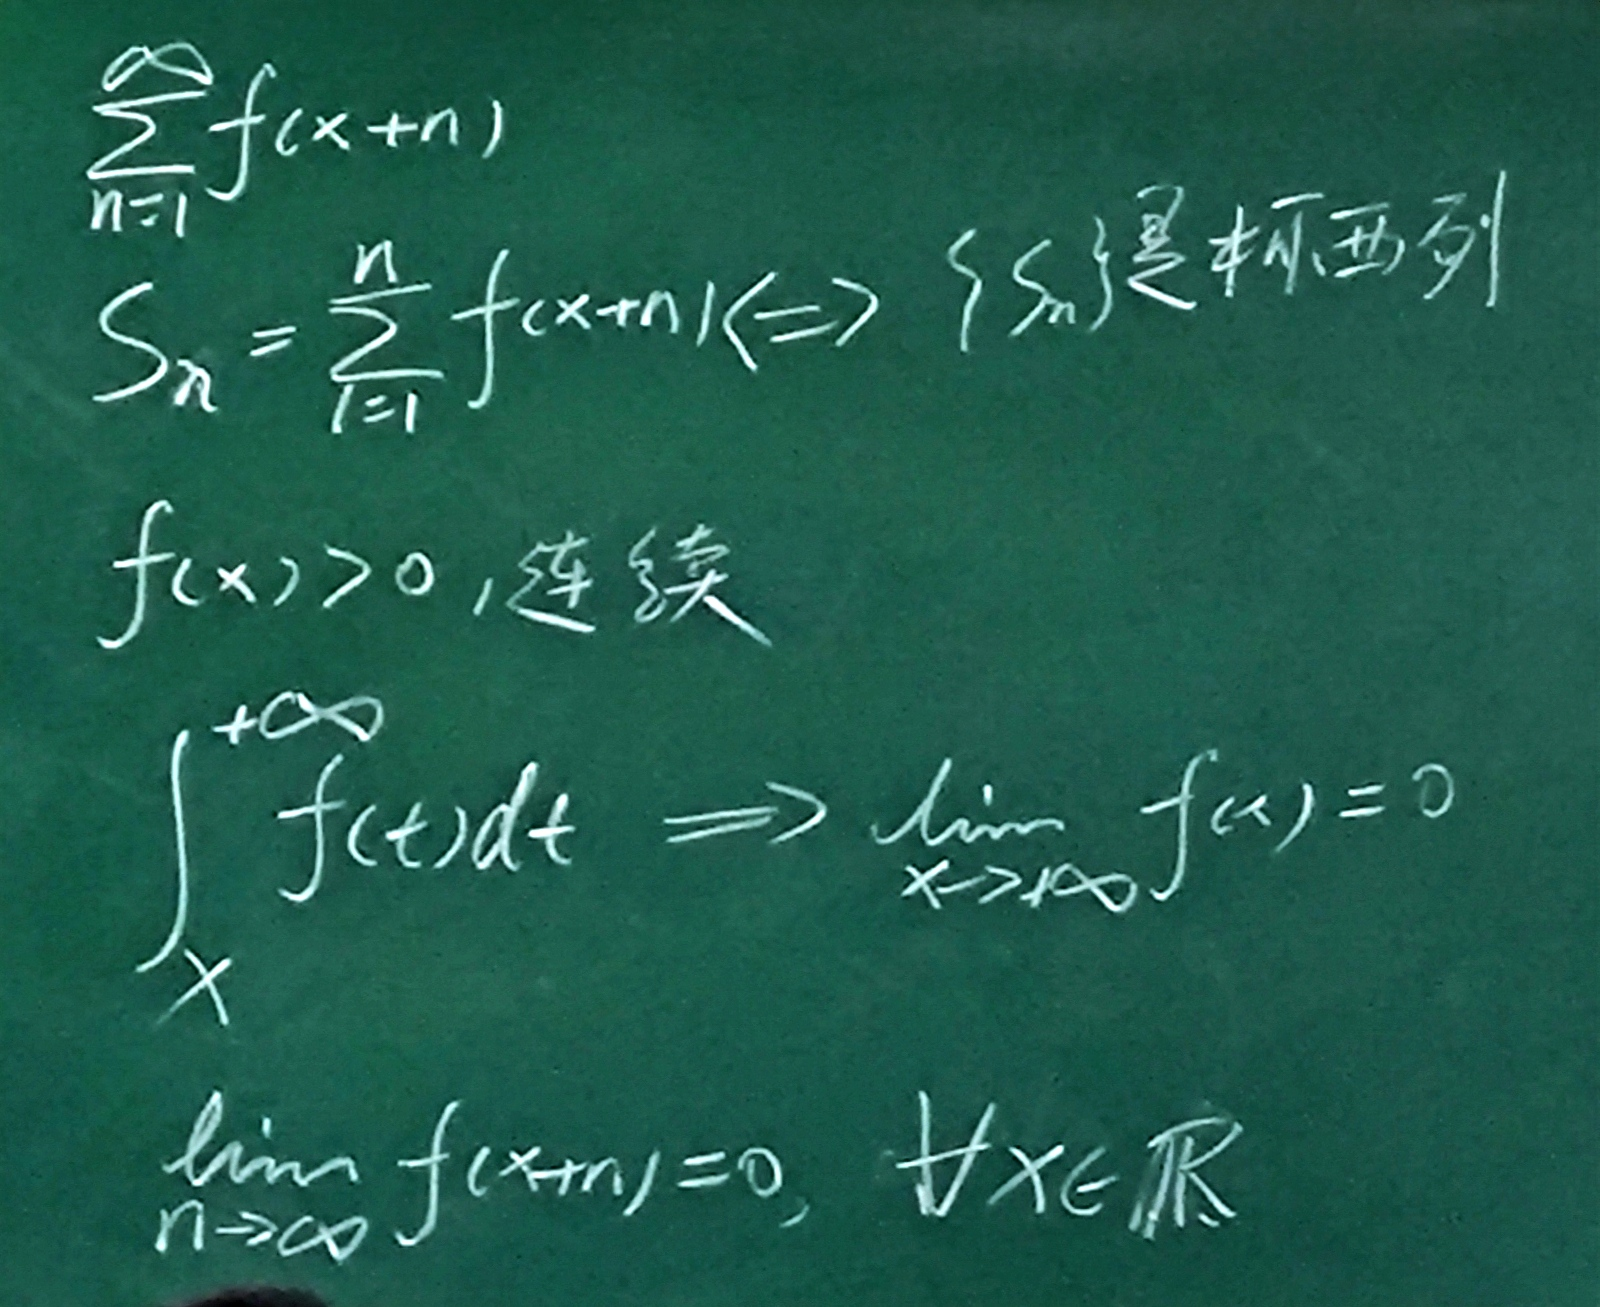 \sum_{n=1}^{\infty} f(x+n)
S_n = \sum_{i=1}^{n} f(x+n) <=> {S_n}是柯西列
f(x)>0,连续
\int_{x}^{+\infty} f(t)dt => \lim_{x->+\infty} f(x)=0
\lim_{n->\infty} f(x+n)=0, ∀x∈ℝ